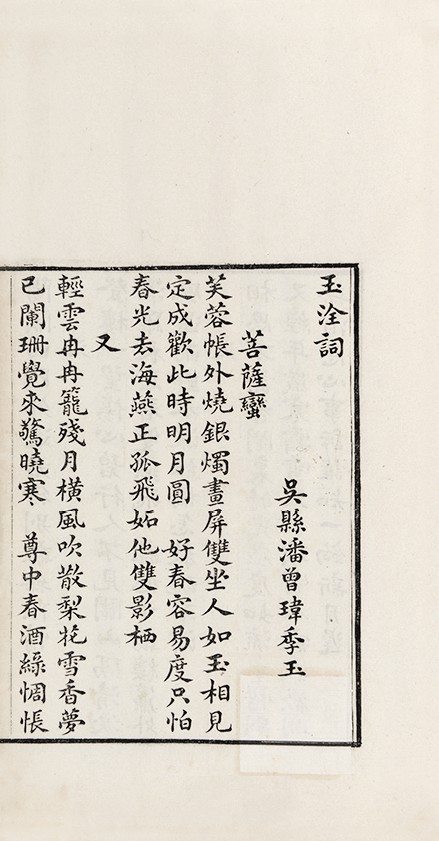 玉洤詞
吳縣潘曾瑋季玉
菩薩蠻
芙蓉帳外燒銀燭畫屏雙坐人如玉相見
定成歡此時明月圓　好春容易度只怕
春光去海燕正孤飛妬他雙影栖
又
輕雲冉冉籠殘月橫風吹散梨花雪香夢
已闌珊覺來驚曉寒　尊中春酒綠惆悵